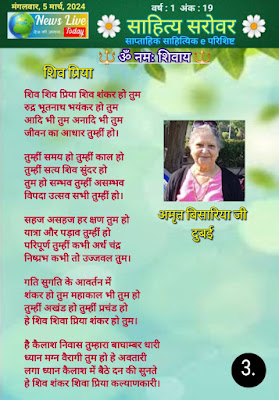 मंगलवार, 5 मार्च, 2024
News Live
Today
वर्ष : 1 अंक : 19
साहित्य सरोवर
साप्ताहिक साहित्यिक e परिशिष्ट
ॐ नमः शिवाय
शिव प्रिया
शिव शिव प्रिया शिव शंकर हो तुम
रुद्र भूतनाथ भयंकर हो तुम
आदि भी तुम अनादि भी तुम
जीवन का आधार तुम्हीं हो।
तुम्हीं समय हो तुम्हीं काल हो
तुम्हीं सत्य शिव सुंदर हो
तुम हो सम्भव तुम्हीं असम्भव
विपदा उत्सव सभी तुम्हीं हो।
सहज असहज हर क्षण तुम हो
यात्रा और पड़ाव तुम्हीं हो
परिपूर्ण तुम्हीं कभी अर्थ चंद्र
निष्प्रभ कभी तो उज्जवल तुम।
गति सुगति के आवर्तन में
शंकर हो तुम महाकाल भी तुम हो
तुम्हीं अखंड हो तुम्हीं प्रचंड हो
हे शिव शिवा प्रिया शंकर हो तुम।
है कैलाश निवास तुम्हारा बाघाम्बर धारी
ध्यान मग्न वैरागी तुम हो हे अवतारी
लगा ध्यान कैलाश में बैठे दन की सुनते
हे शिव शंकर शिवा प्रिया कल्याणकारी।
अमृत बिसारिया जी
दुबई
3.